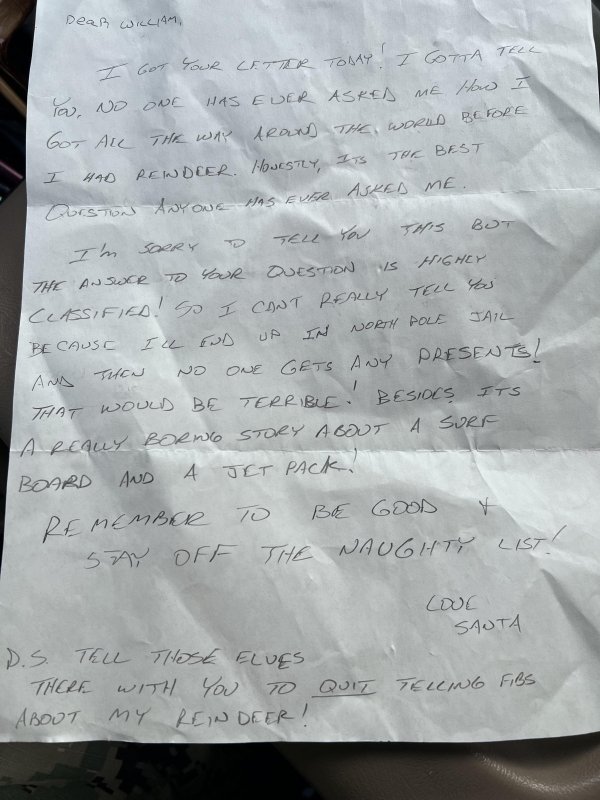 Dear William,
I GOT YOUR LETTER TODAY! I GOTTA TELL
YOU, NO ONE HAS EVER ASKED ME HOW I
GOT ALL THE WAY AROUND THE WORLD BEFORE
I HAD REINDEER. HONESTLY, ITS THE BEST
QUESTION ANYONE HAS EVER ASKED ME.
I'm SORRY TO TELL YOU THIS BUT
THE ANSWER TO YOUR QUESTION IS HIGHLY
CLASSIFIED! SO I CANT REALLY TELL YOU
BECAUSE ILL END UP IN NORTH POLE JAIL
AND THEN NO ONE GETS ANY PRESENTS!
THAT WOULD BE TERRIBLE! BESIDES, ITS
A REALLY BORING STORY ABOUT A SURF
BOARD AND A JET PACK!
REMEMBER TO BE GOOD &
STAY OFF THE NAUGHTY LIST!
LOVE
SANTA
P.S. TELL THOSE ELVES
THERE WITH YOU TO QUIT TELLING FIBS
ABOUT MY REINDEER!